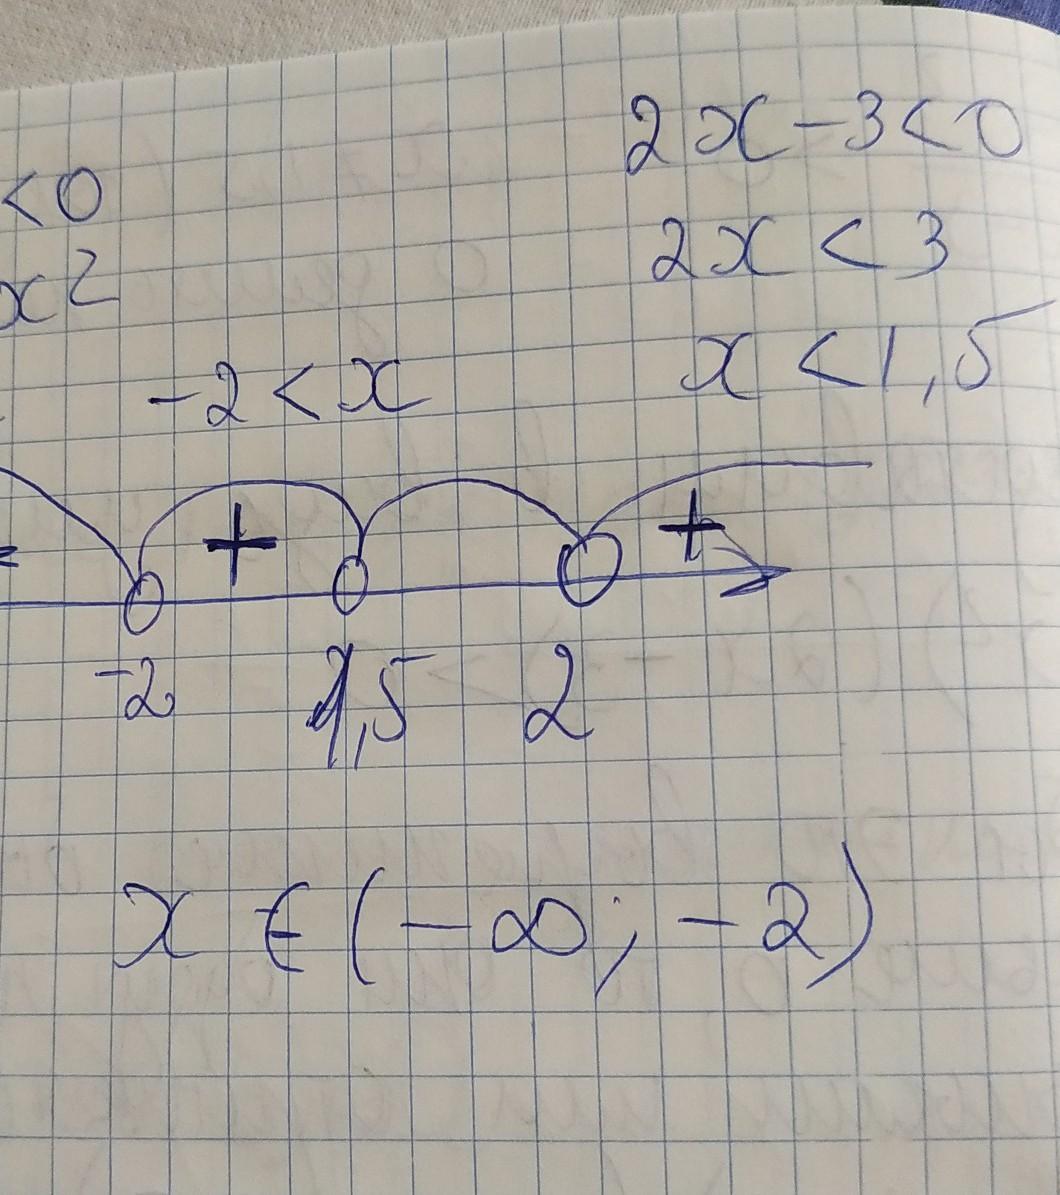 2x-3<0
<0
2x<3
x²
x<1,5
-2<x
+ +
-2 1,5 2
x∈(-∞;-2)